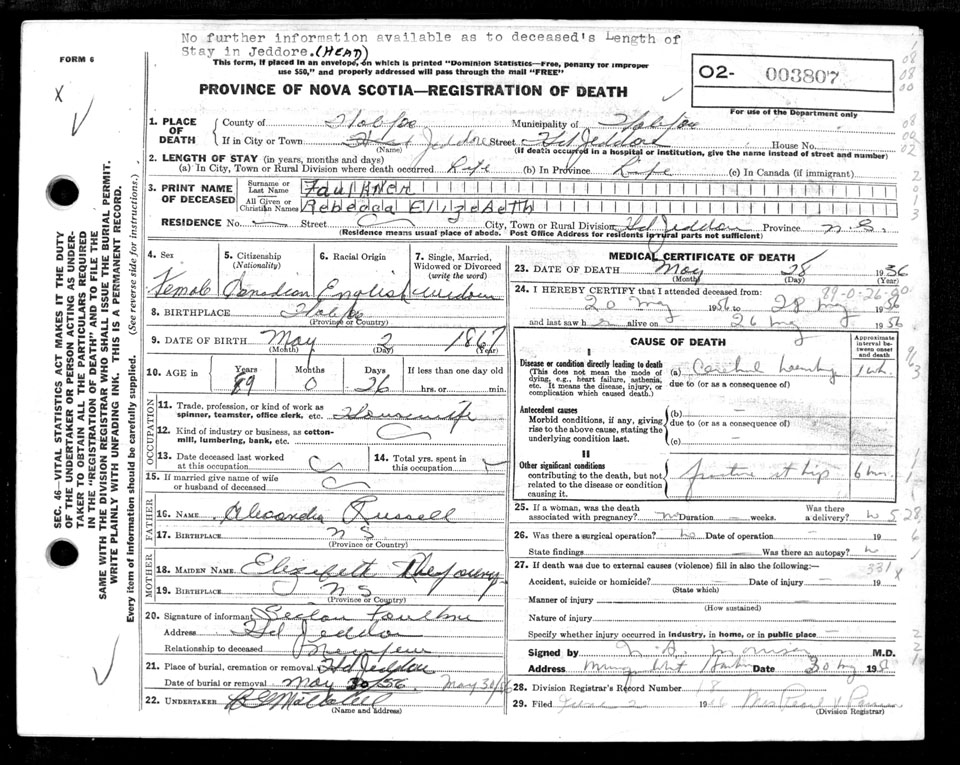 No further information available as to deceased's Length of
Stay in Jeddore. (HEAD)
FORM 6
This form, if placed in an envelope, on which is printed "Dominion Statistics—Free, penalty for improper
use $50," and properly addressed will pass through the mail "FREE"
O2- 003807
For use of the Department only
PROVINCE OF NOVA SCOTIA—REGISTRATION OF DEATH
SEC. 46 VITAL STATISTICS ACT MAKES IT THE DUTY
OF THE UNDERTAKER OR PERSON ACTING AS UNDER-
TAKER TO OBTAIN ALL THE PARTICULARS REQUIRED
IN THE "REGISTRATION OF DEATH" AND TO FILE THE
SAME WITH THE DIVISION REGISTRAR WHO SHALL ISSUE THE BURIAL PERMIT.
WRITE PLAINLY WITH UNFADING INK. THIS IS A PERMANENT RECORD.
Every item of information should be carefully supplied. (See reverse side for instructions.)
1. PLACE OF DEATH
County of Halifax Municipality of Halifax
If in City or Town Jeddore Street Hd Jeddore House No.
(Name) (If death occurred in a hospital or institution, give the name instead of street and number)
2. LENGTH OF STAY (in years, months and days)
(a) In City, Town or Rural Division where death occurred Life (b) In Province Life (c) In Canada (if immigrant)
3. PRINT NAME OF DECEASED
Surname or Last Name Faulkner
All Given or Christian Names Rebecca Elizebeth
RESIDENCE No. Street City, Town or Rural Division Hd Jeddore Province N.S.
(Residence means usual place of abode. Post Office Address for residents in rural parts not sufficient)
4. Sex Female
5. Citizenship (Nationality) Canadian
6. Racial Origin English
7. Single, Married, Widowed or Divorced (write the word) widow
8. BIRTHPLACE Halifax
(Province or Country)
9. DATE OF BIRTH May 2 1867
(Month) (Day) (Year)
10. AGE in Years 89 Months 0 Days 26 If less than one day old hrs. or min.
OCCUPATION
11. Trade, profession, or kind of work as spinner, teamster, office clerk, etc. Housewife
12. Kind of industry or business, as cotton-mill, lumbering, bank, etc.
13. Date deceased last worked at this occupation
14. Total yrs. spent in this occupation
15. If married give name of wife or husband of deceased
FATHER
16. NAME Russell
17. BIRTHPLACE N S
(Province or Country)
MOTHER
18. MAIDEN NAME Elizabeth
19. BIRTHPLACE N S
(Province or Country)
20. Signature of informant
Address Hd Jeddore
Relationship to deceased
21. Place of burial, cremation or removal Hd Jeddore
Date of burial or removal May 30/56. May 30/56
22. UNDERTAKER
(Name and address)
MEDICAL CERTIFICATE OF DEATH
23. DATE OF DEATH May 28 1956
(Month) (Day) (Year)
89-0-26
24. I HEREBY CERTIFY that I attended deceased from:
20 My 1956 to 28 My 1956
and last saw h alive on 26 My 1956
CAUSE OF DEATH
Approximate interval between onset and death
I
Disease or condition directly leading to death
(This does not mean the mode of dying, e.g., heart failure, asthenia, etc. It means the disease, injury, or complication which caused death.)
(a) 1 wk.
due to (or as a consequence of)
Antecedent causes
Morbid conditions, if any, giving rise to the above cause, stating the underlying condition last.
(b)
due to (or as a consequence of)
(c)
II
Other significant conditions
contributing to the death, but not related to the disease or condition causing it.
fracture hip 6 mo.
25. If a woman, was the death associated with pregnancy? No Duration weeks. Was there a delivery?
26. Was there a surgical operation? No Date of operation 19
State findings Was there an autopsy?
27. If death was due to external causes (violence) fill in also the following:—
331 x
Accident, suicide or homicide? Date of injury 19
(State which)
Manner of injury
(How sustained)
Nature of injury
Specify whether injury occurred in industry, in home, or in public place
Signed by M.D.
Address Date 30 My 19
28. Division Registrar's Record Number
29. Filed June 2 1956 Mrs
(Division Registrar)